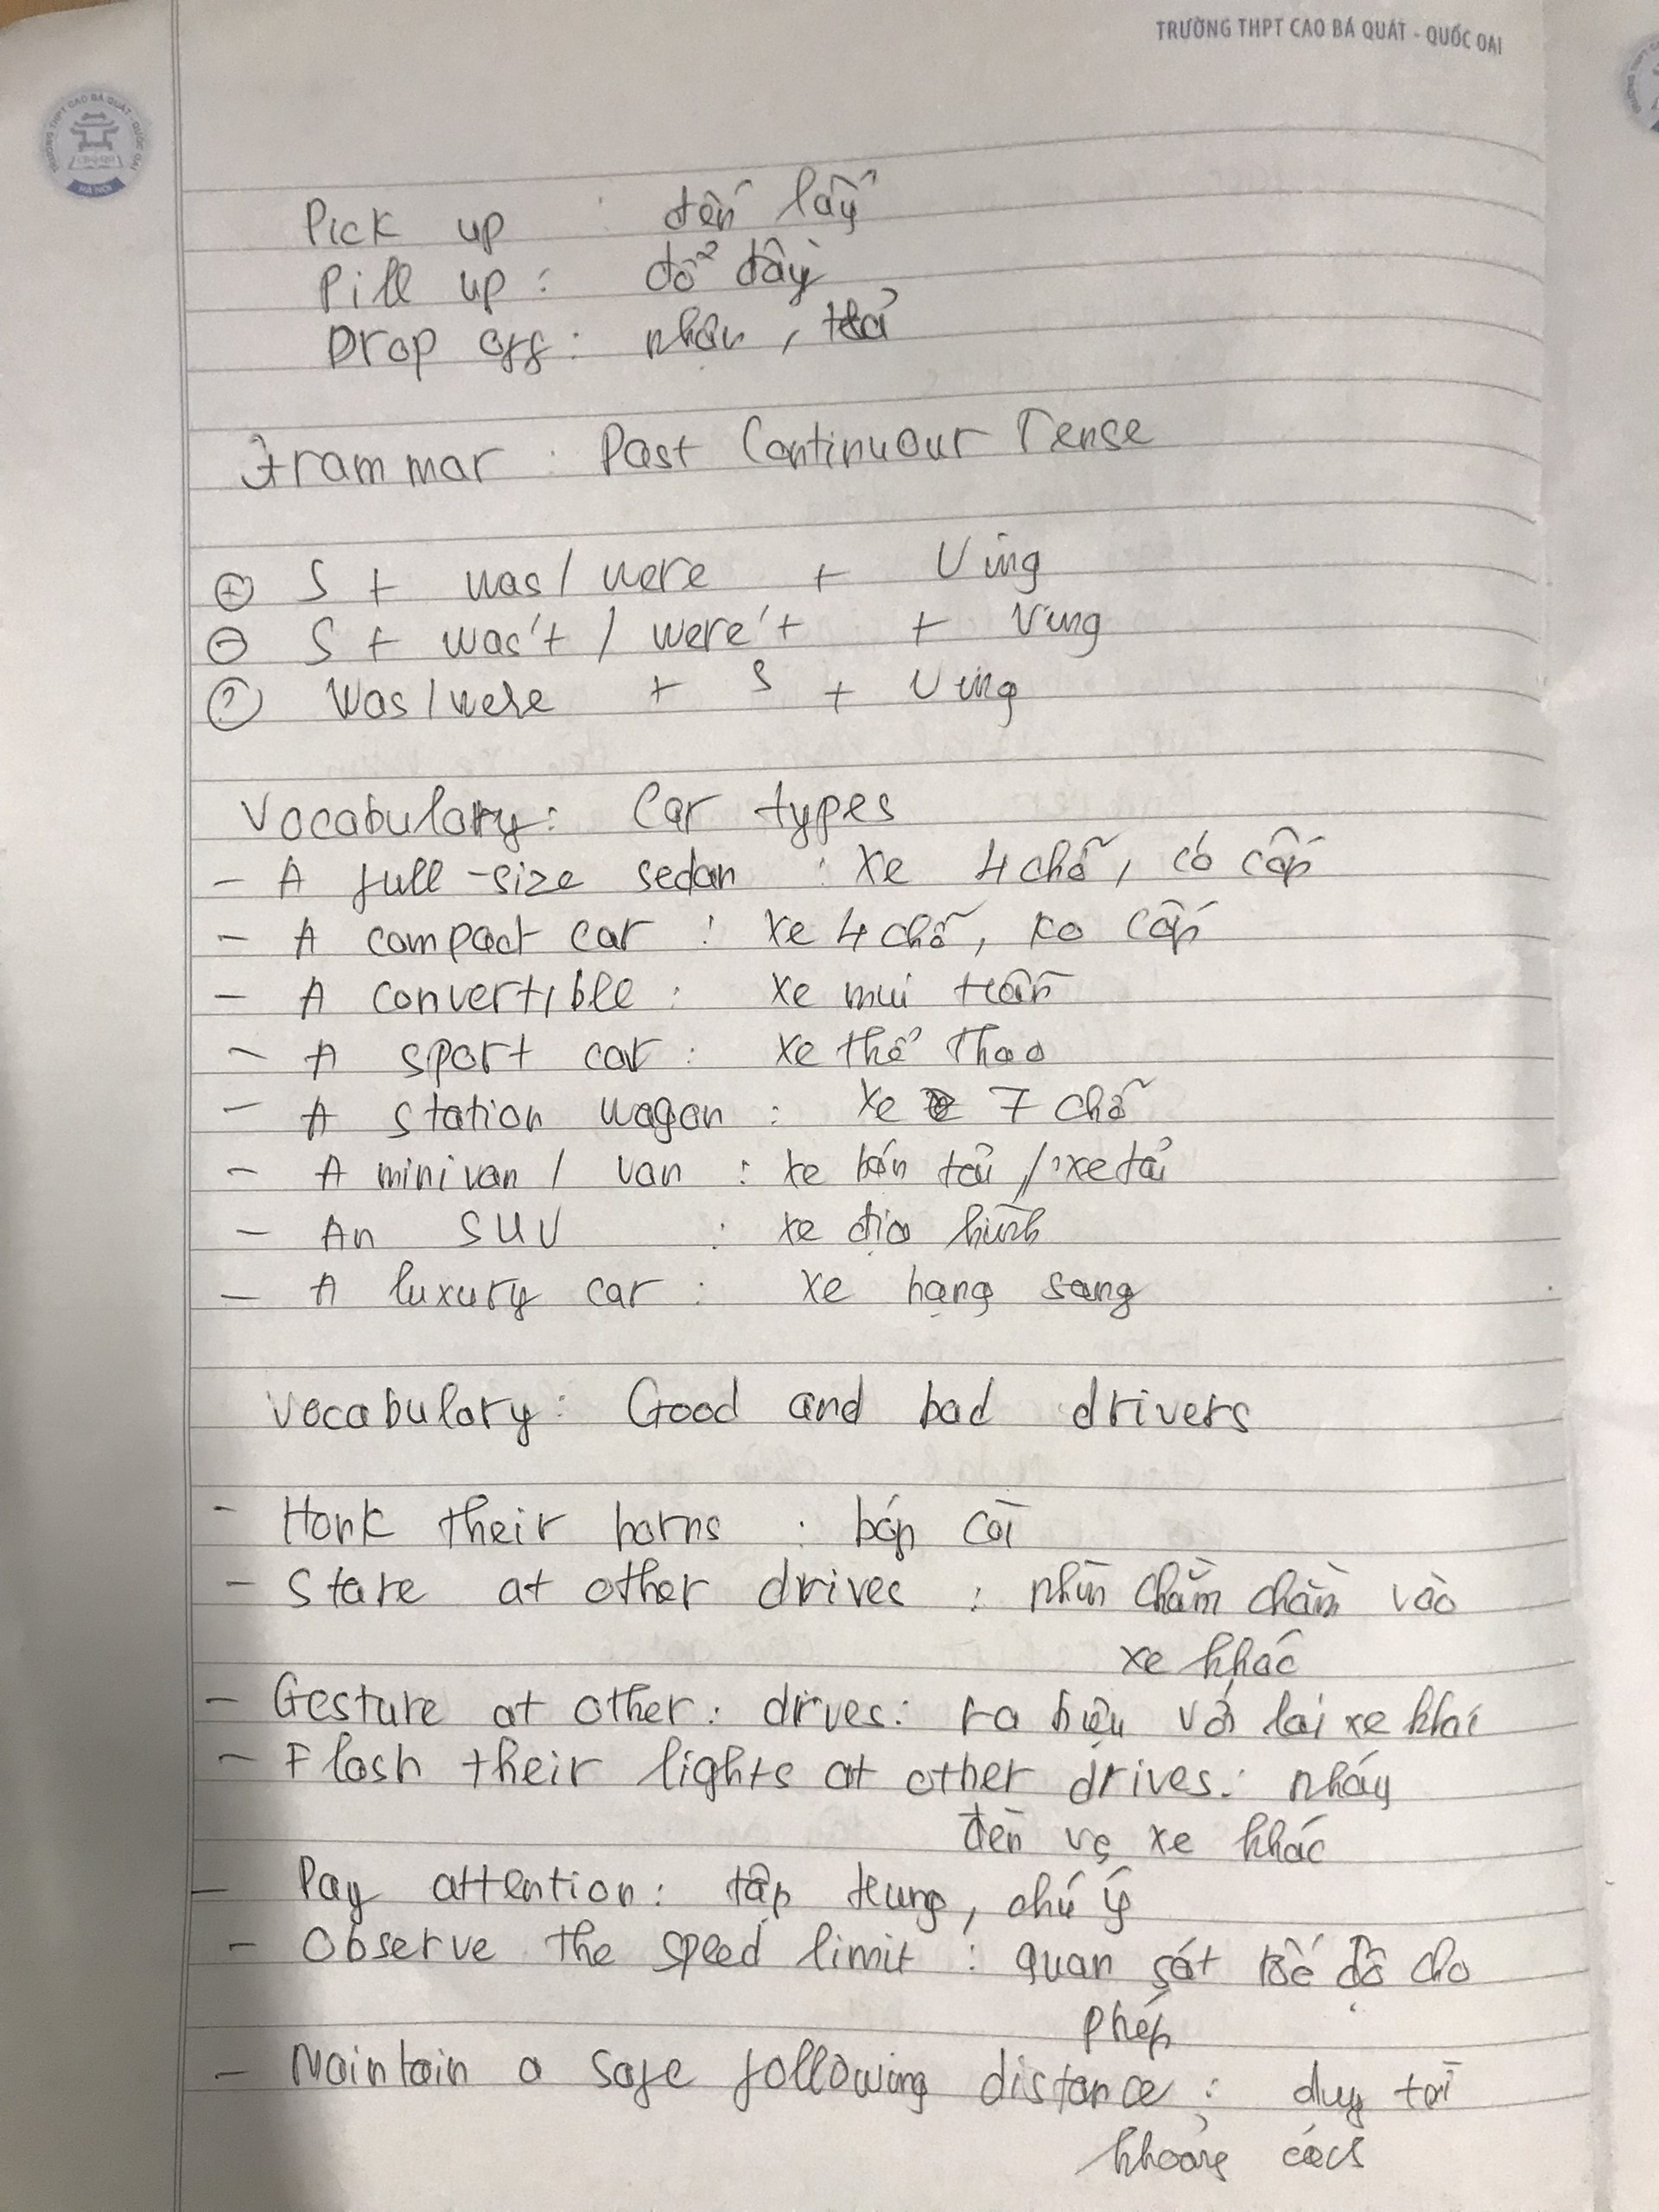 TRƯỜNG THPT CAO BÁ QUÁT - QUỐC OAI
TRƯỜNG THPT CAO BÁ QUÁT - QUỐC OAI
HÀ NỘI
Pick up : đến lấy
Pill up : đổ đầy
Drop off : nhận, trả
Grammar : Past Continuour Tense
+ S + was / were + Ving
- S + was't / were't + Ving
? Was / were + S + Ving
Vocabulary : Car types
- A full-size sedan : xe 4 chỗ, có cốp
- A compact car : xe 4 chỗ, ko cốp
- A convertible : xe mui trần
- A sport car : xe thể thao
- A station wagon : xe 7 chỗ
- A minivan / van : xe bán tải / xe tải
- An SUV : xe địa hình
- A luxury car : xe hạng sang
Vocabulary : Good and bad drivers
- Honk their horns : bóp còi
- Stare at other drives : nhìn chằm chằm vào
xe khác
- Gesture at other : drives : ra hiệu với lái xe khác
- Flash their lights at other drives : nháy
đèn vs xe khác
- Pay attention : tập trung, chú ý
- Observe the speed limit : quan sát tốc độ cho
phép
- Maintain a safe following distance : duy trì
khoảng cách